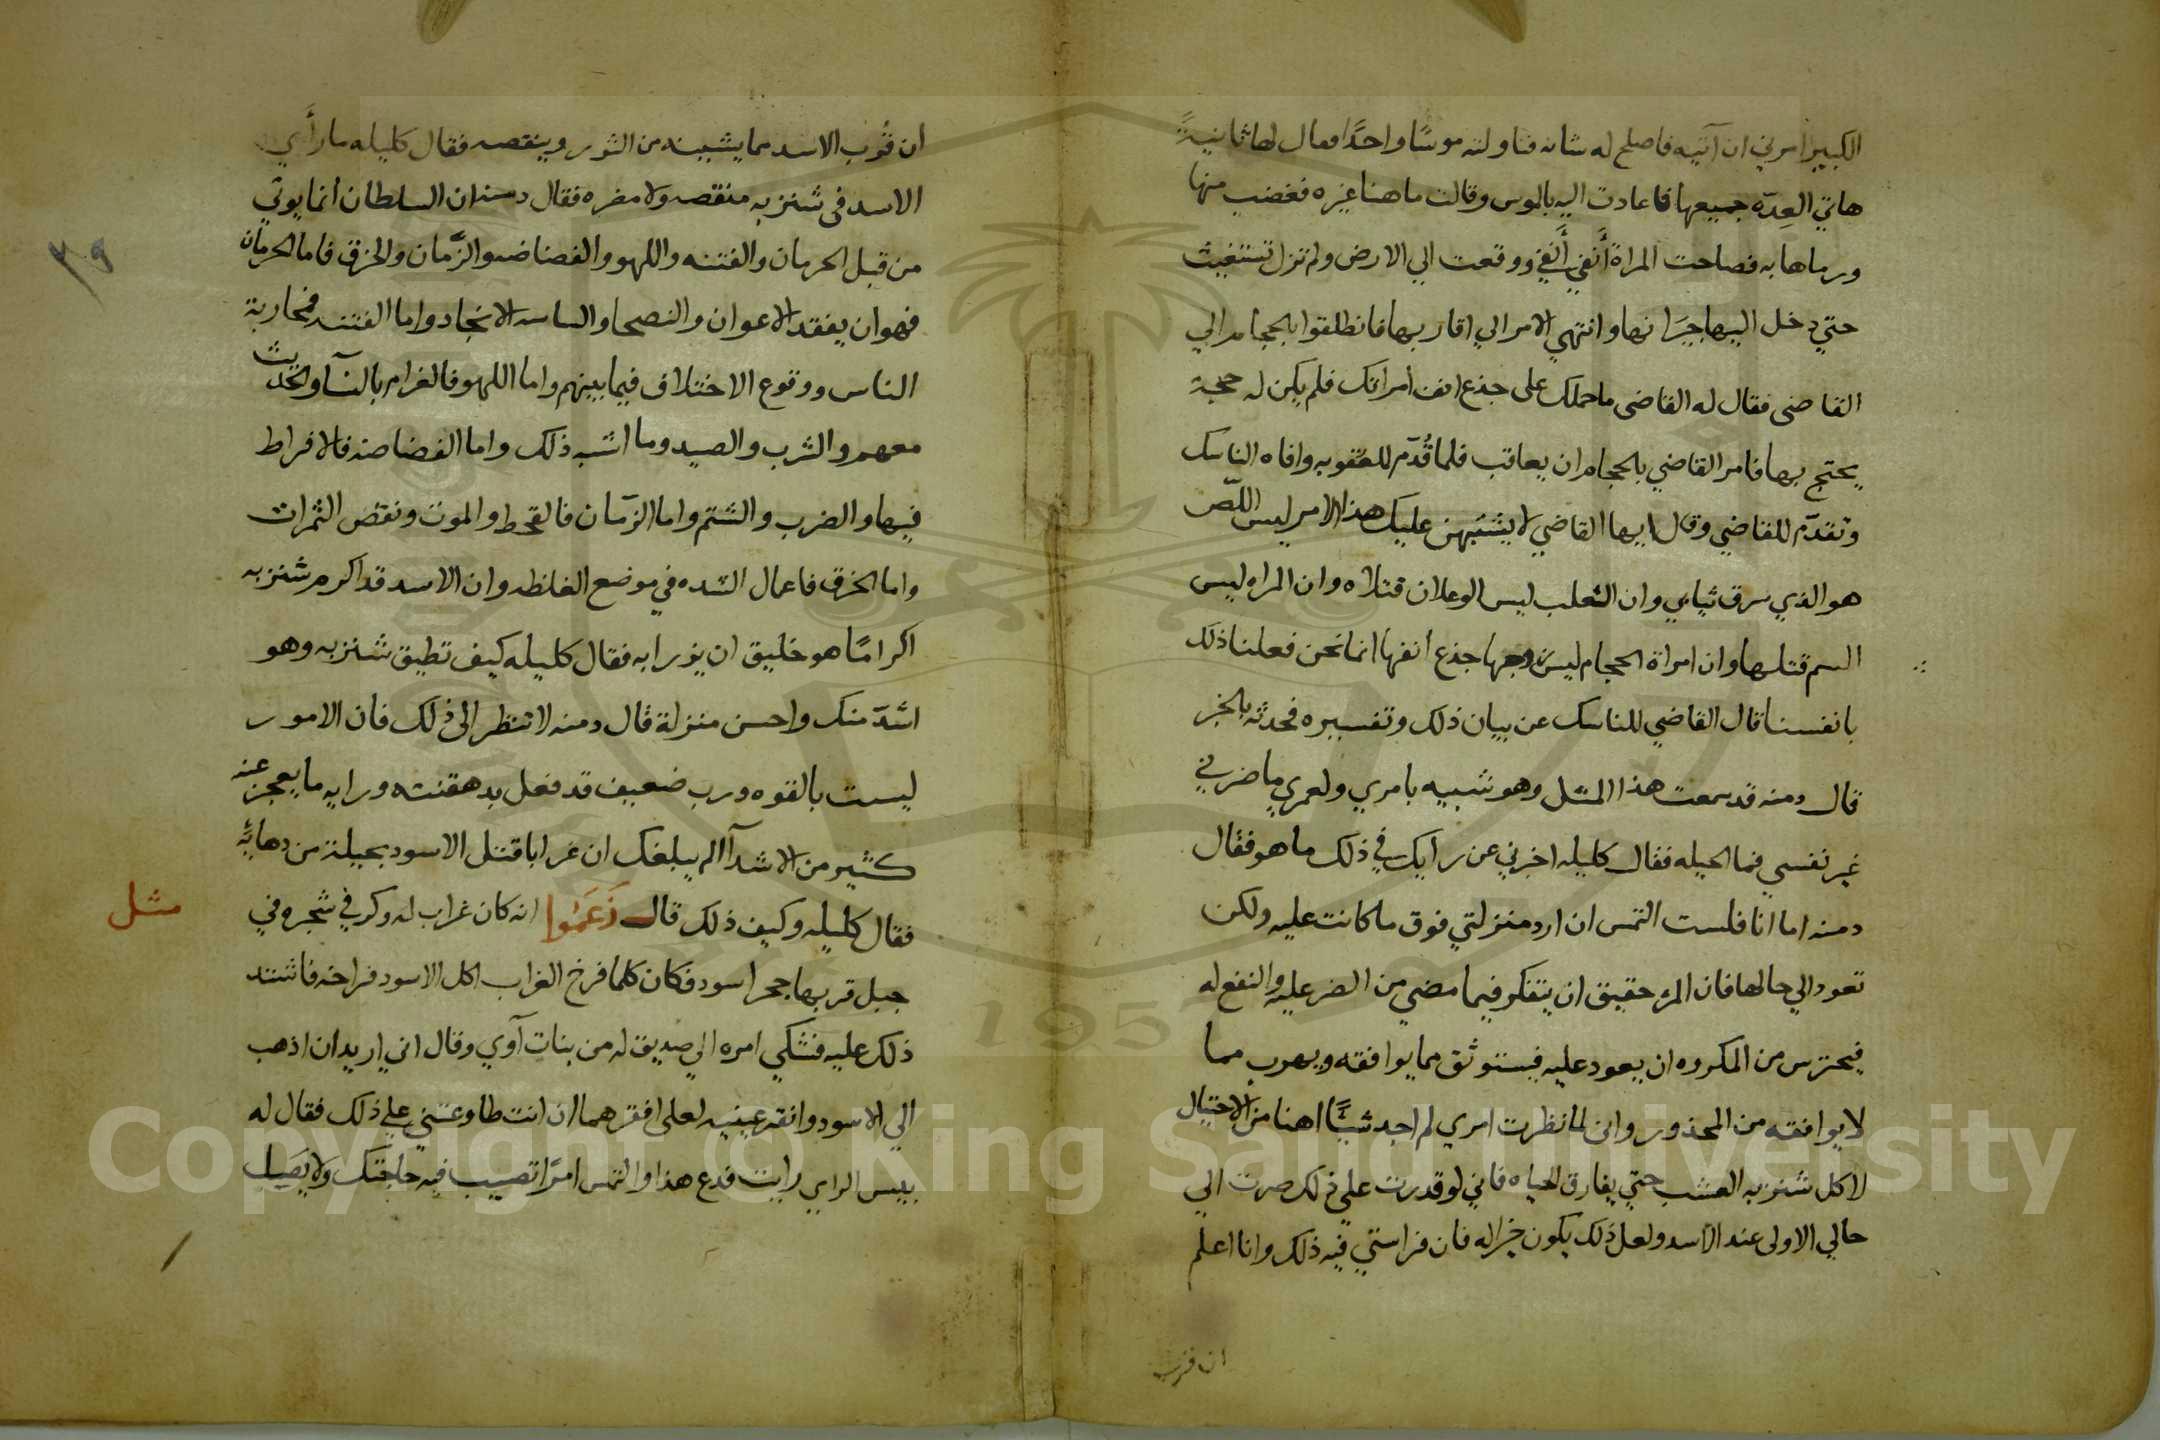 الكبير امرني ان آتيه فاصلح له شانه فناولته موسًا واحدًا فقال لها ثانيةً
هاتي العِدّه جميعها فاعادت اليه بالموس وقالت ما هنا غيره فغضب منها
ورماها به فصاحت المراة أنفي أنفي ووقعت الي الارض ولم تزل تستغيث
حتي دخل اليها جيرانها وانتهي الامر الي اقاربها فانطلقوا بالحجام الي
القاضي فقال له القاضي ما حملك على جذع انف امراتك فلم يكن له حجة
يحتج بها فامر القاضي بالحجام ان يعاقب فلما قُدّم للعقوبه وافاه الناسك
وتقدّم للقاضي وقال ايها القاضي لا يشتبهن عليك هذا الامر ليس اللّص
هو الذي سرق ثيابي وان الثعلب ليس الوعلان قتلاه وان المراه ليس
السم قتلها وان امراة الحجام ليس زوجها جذع انفها انما نحن فعلنا ذلك
بانفسنا قال القاضي للناسك عن بيان ذلك وتفسيره فحدثه بالخبر
قال دمنه قد سمعت هذا المثل وهو شبيه بامري ولعمري ما ضرني
غير نفسي فما الحيله فقال كليله اخبرني عن رأيك في ذلك ما هو فقال
دمنه اما انا فلست التمس ان ارد منزلتي فوق ما كانت عليه ولكن
تعود الي حالها فان المرء حقيق ان يتفكر فيما مضي من الضر عليه والنفع له
فيحترس من المكروه ان يعود عليه فيستوثق مما يوافقه ويهرب مما
لا يوافقه من المحذور واني لما نظرت امري لم اجد شيئًا اهنا من الاحتيال
لاكل شنزبه العشب حتي يفارق الحياه فاني لو قدرت علي ذلك صرت الي
حالي الاولى عند الاسد ولعل ذلك يكون خيرا له فان فراستي فيه ذلك وانا اعلم
ان قرب
ان قُرب الاسد مما يشينه من الثور وينقصه فقال كليله ما رأي
الاسد في شنزبه منقصه ولا مضره فقال دمنه ان السلطان انما يوتي
من قبل الحرمان والفتنه واللهو والفضاضه والزَّمان والخرق فاما الحرمان
فهو ان يفقد الاعوان والنصحا والساسه الانجاد واما الفتنه فمحاربة
الناس ووقوع الاختلاف فيما بينهم واما اللهو فالغرام بالنسآ والحديث
معهم والشرب والصيد وما اشبه ذلك واما الفضاضه فالافراط
فيها والضرب والشتم واما الزمان فالقحط والموت ونقص الثمرات
واما الخرق فاعمال الشده في موضع الغلظه وان الاسد قد اكرم شنزبه
اكرامًا هو خليق ان يزرا به فقال كليله كيف تطيق شنزبه وهو
اشدّ منك واحسن منزلة قال دمنه لا تنظر الى ذلك فان الامور
ليست بالقوه ورب ضعيف قد فعل بدهقنته ورايه ما يعجز عنه
كثير من الاشدآ الم يبلغك ان غرابا قتل الاسود بحيلة من دهائِه
فقال كليله وكيف ذلك قال زَعَمُوا انه كان غراب له وكر في شجره في
مثل
جبل قربها جحر اسود فكان كلما فرخ الغراب اكل الاسود فراخه فاشتد
ذلك عليه فشكي امره الي صديق له من بنات آوي وقال اني اريد ان اذهب
الي الاسود وانقر عينيه لعلى افقرهما ان انت طاوعتني علي ذلك فقال له
بيس الراي رايت فدع هذا والتمس امرًا تصيب فيه حاجتك ولا يَصِيب
٣٩
Copyright © King Saud University
195